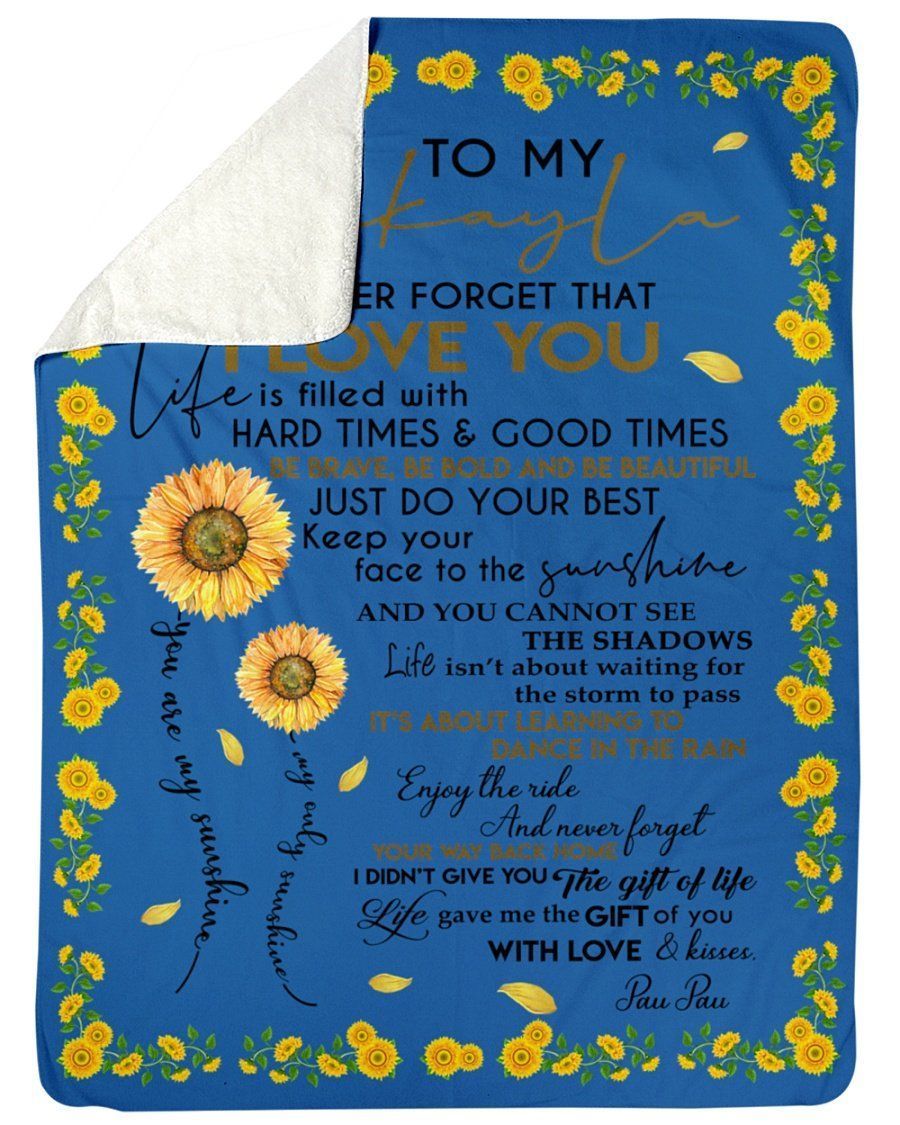 TO MY
kayla
ER FORGET THAT
I LOVE YOU
Life is filled with
HARD TIMES & GOOD TIMES
BE BRAVE, BE BOLD AND BE BEAUTIFUL
JUST DO YOUR BEST
Keep your
face to the sunshine
AND YOU CANNOT SEE
THE SHADOWS
Life isn't about waiting for
the storm to pass
IT'S ABOUT LEARNING TO
DANCE IN THE RAIN
Enjoy the ride
And never forget
YOUR WAY BACK HOME
I DIDN'T GIVE YOU The gift of life
Life gave me the GIFT of you
WITH LOVE & kisses.
Pau Pau
you are my sunshine
my only sunshine